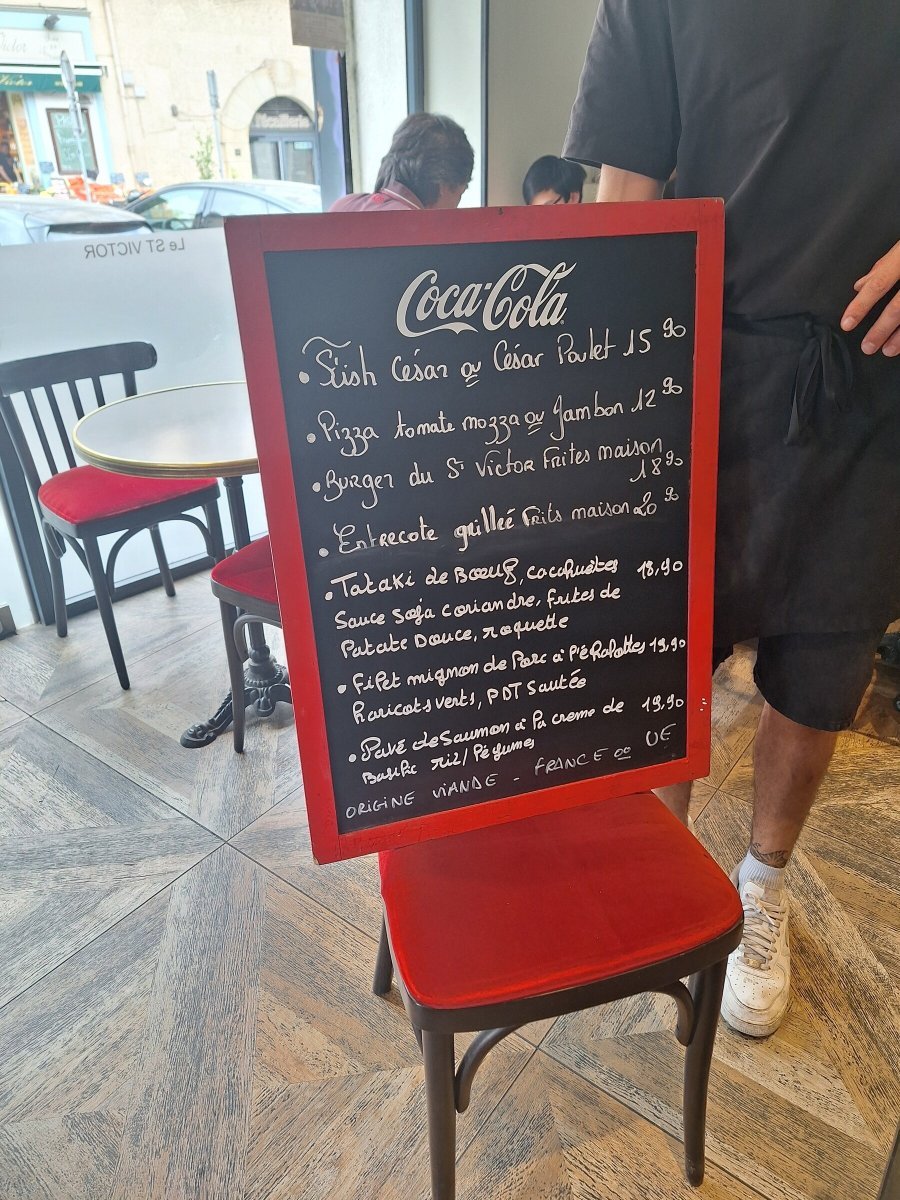 Victor
Victor
Le ST VICTOR
Coca-Cola
• Fish César ou César Poulet 15 90
• Pizza tomate mozza ou Jambon 12 90
• Burger du St Victor Frites maison
18 90
• Entrecote grilleé Frits maison 20 90
• Tataki de Boeuf, cacahuètes 18,90
Sauce Soja coriandre, frites de
Patate Douce, roquette
• Filet mignon de Porc à l'échalottes 19,90
haricots verts, PDT Sautée
• Pavé de Saumon à la creme de 19,90
Basilic riz/légumes
ORIGINE VIANDE - FRANCE ou UE